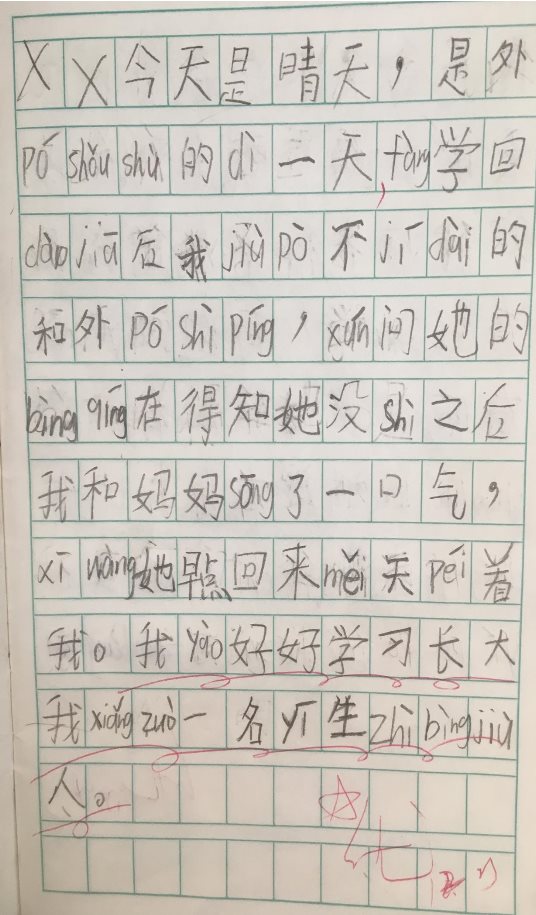 X X 今天是晴天，是外
pó shǒu shù 的 dì 一天，fàng 学回
dào jiā 后我 jiù pò 不 jí dài 的
和外 pó shì pín，xún 问她的
bìng qíng 在得知她没 shì 之后
我和妈妈 sōng 了一口气，
xī wàng 她早点回来 měi 天 péi 着
我。我 yào 好好学习长大
我 xiǎng zuò 一名 yī 生 zhì bìng jiù
人。
优